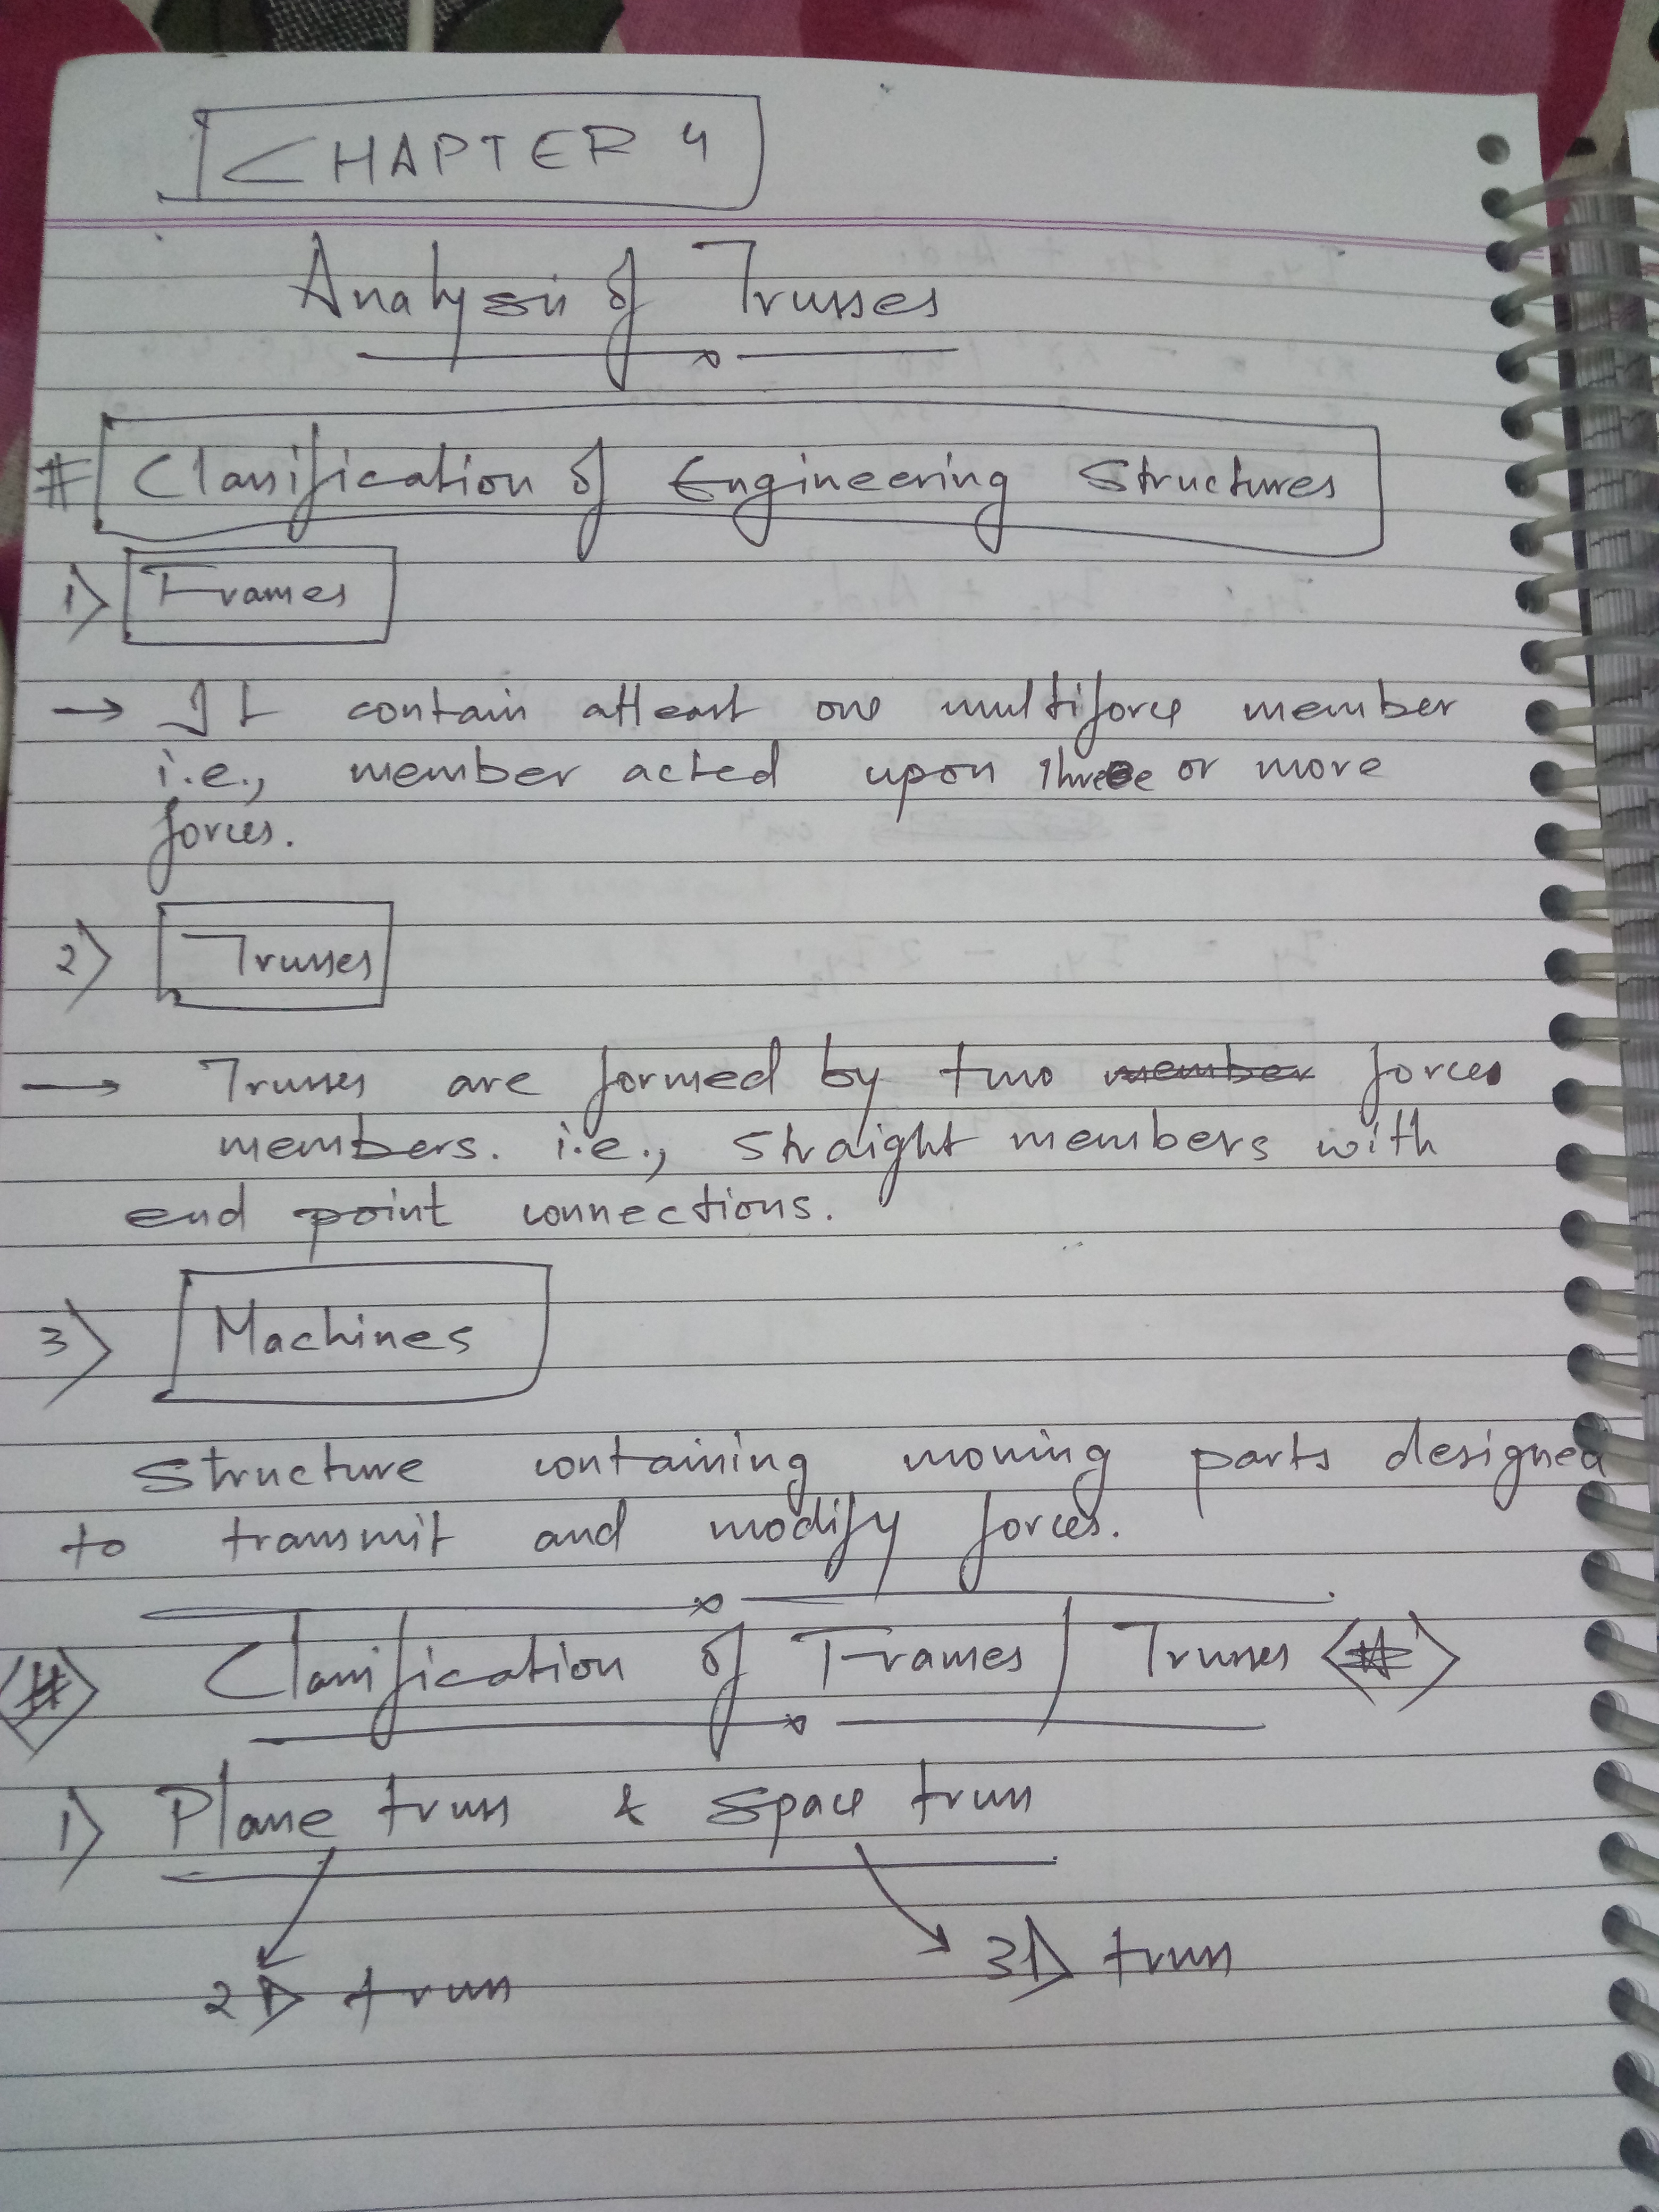 CHAPTER 4
Analysis of Trusses
# Classification of Engineering Structures
1) Frames
→ It contain atleast one multiforce member
i.e., member acted upon three or more
forces.
2) Trusses
→ Trusses are formed by two member forces
members. i.e., straight members with
end point connections.
3) Machines
Structure containing moving parts designed
to transmit and modify forces.
# Classification of Frames / Trusses #
1) Plane truss & Space truss
2D truss
3D truss